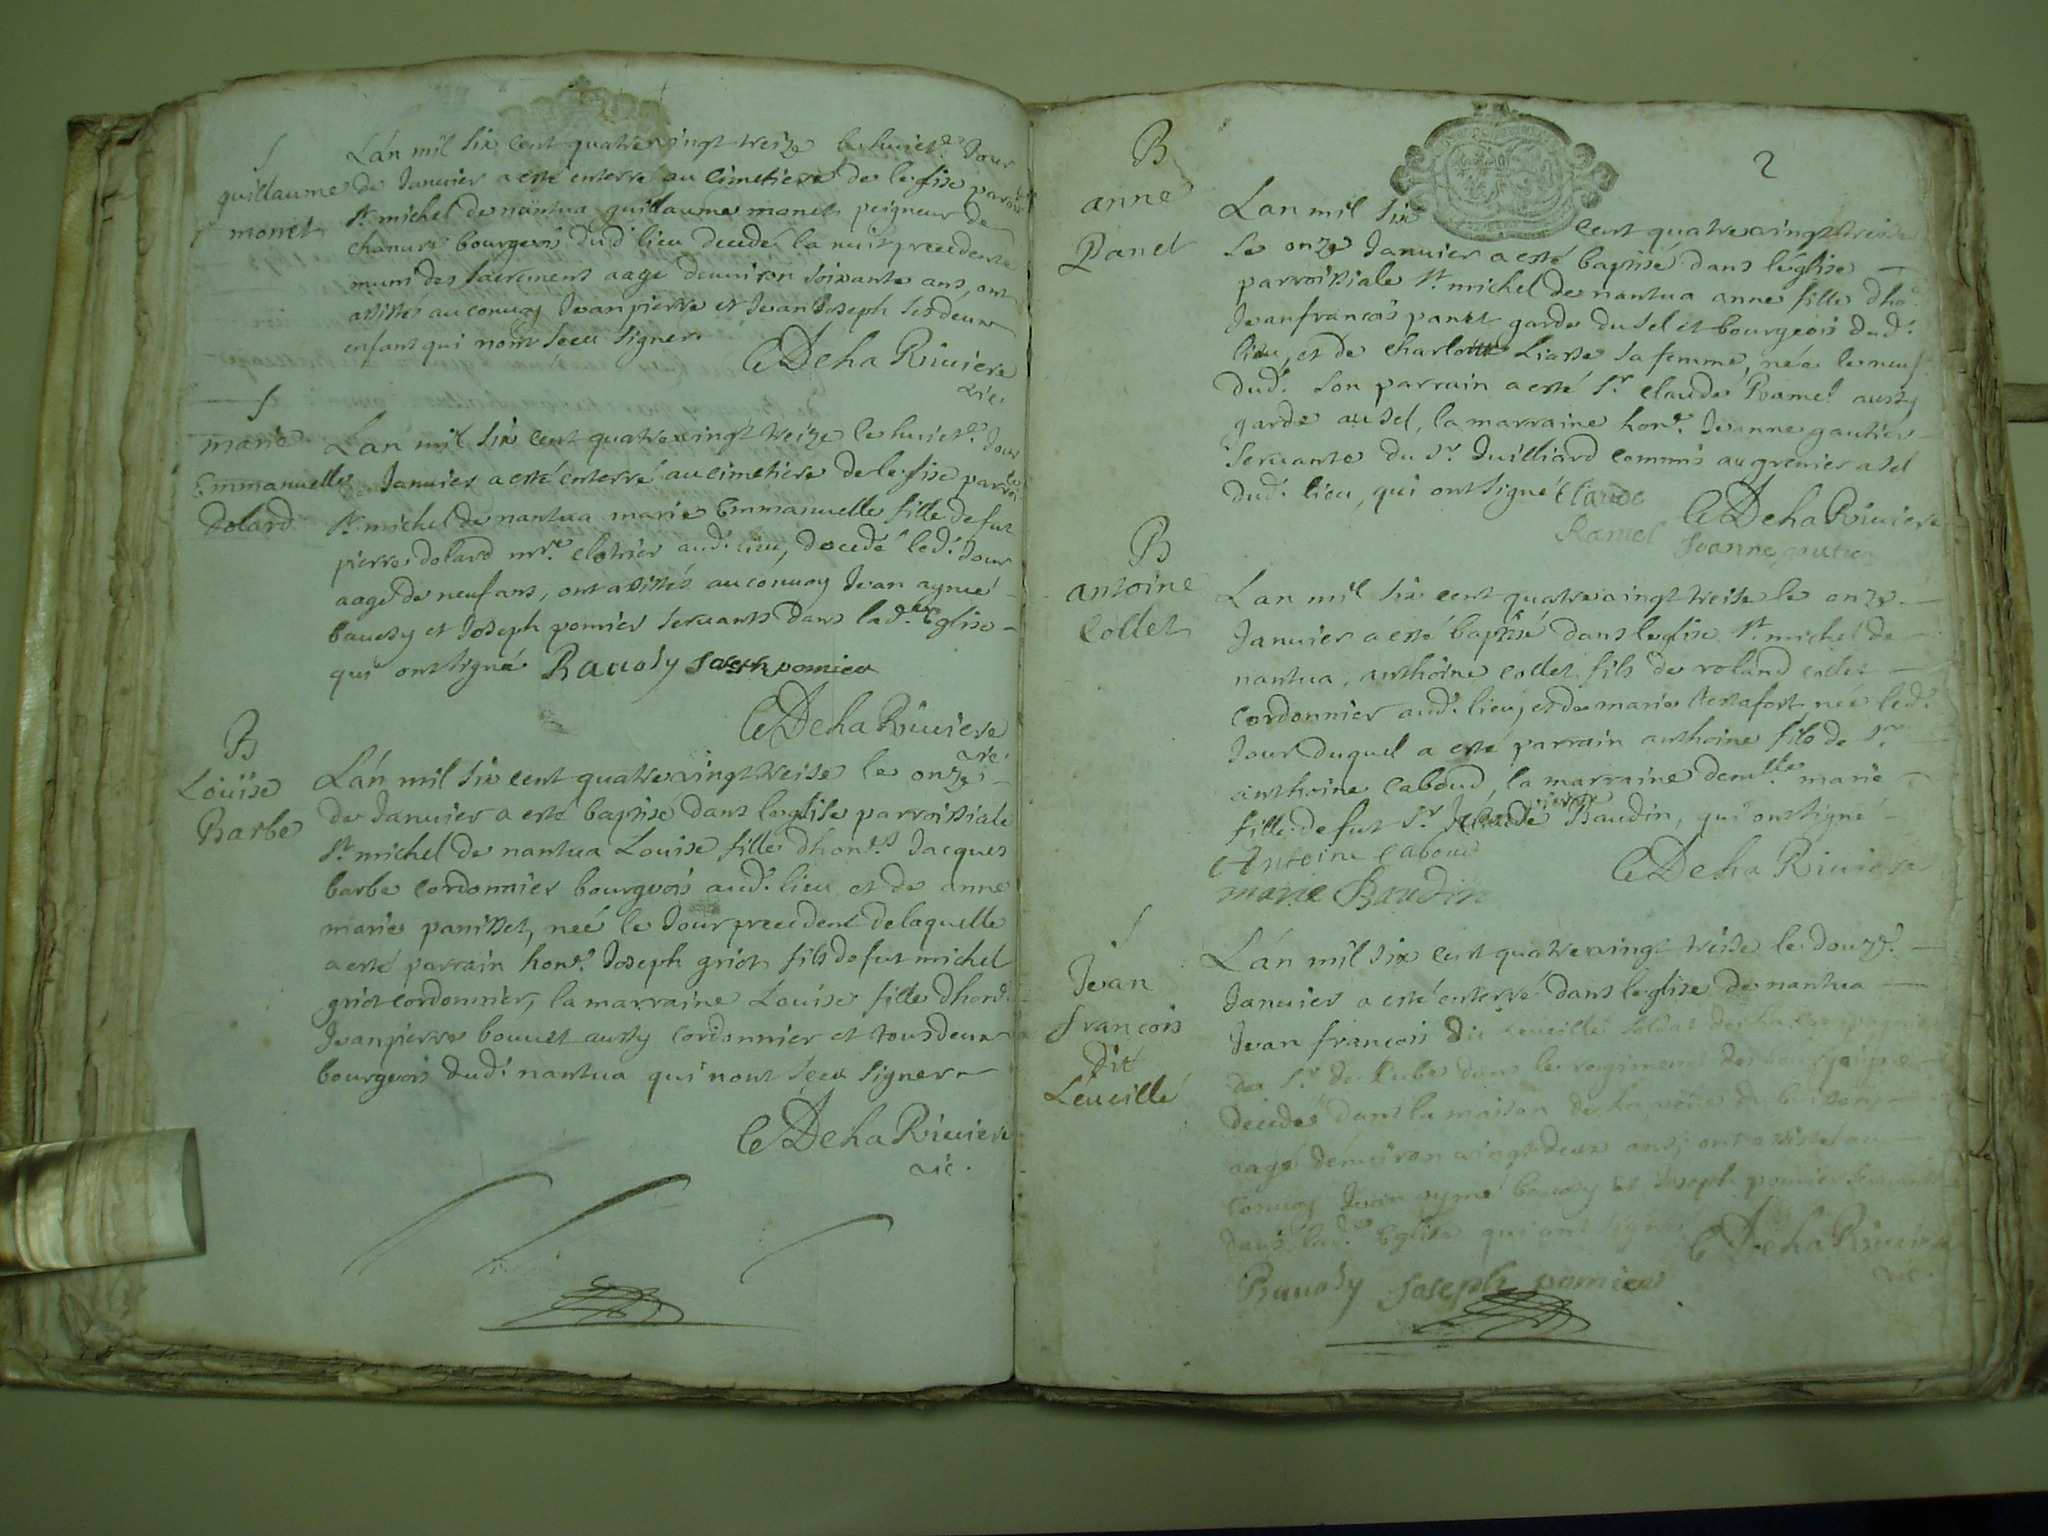 S
guillaume
monet
L'an mil six cent quatre vingt treize le huict.e Jour
de Januier a esté enterré au cimetiere de leglise parroi
St. michel de nantua guillaume monet peigneur de
chanure bourgeois dud. lieu decedé la nuit precedente
muni des sacrement aagé denuiron soixante ans, ont
assistés au conuoy Jean pierre et Jean Joseph ses deux
enfant qui nont sceu signer
CDehaRiuiere
vic.
S
marie
Emmanuelle
Dolard
L'an mil six cent quatre vingt treize le huict.e Jour
Januier a esté enterré au cimetiere de leglise parroi.le
St. michel de nantua marie Emmanuelle fille de fut
pierre dolard mre. aud. lieu, decedé led. Jour
aagé de neuf ans, ont assistés au conuoy Jean aymé
bauosy et Joseph pomier seruants dans lad.e Eglise
qui ont signé Bauosy Joseph pomier
CDehaRiuiere
vic.
B
Loüise
Barbe
L'an mil six cent quatre vingt treise le onze
de Januier a esté baptisé dans leglise parroissiale
St. michel de nantua Louise fille dhon.e Jacques
barbe cordonnier bourgeois aud. lieu et de anne
marie panisset, neé le Jour precedent de laquelle
a esté parrain hon.e Joseph griot fils de fut michel
griot cordonnier, la marraine Louise fille dhon.
Jean pierre bouuet aussy cordonnier et tous deux
bourgeois dud. nantua qui nont sceu signer
CDehaRiuiere
vic.
2
B
anne
Panet
Lan mil six cent quatre vingt treise
le onze Januier a esté baptisé dans léglise
parroissiale St. michel de nantua anne fille dho.
Jean francois panet garde du sel et bourgeois dud.
lieu, et de charlotte Liasse sa femme, née le neuf
dud. son parrain a esté Sr. claude Ramel aussy
garde au sel, la marraine hon.e Jeanne gautier
seruante du Sr. Juilliard commis au grenier a sel
dud. lieu, qui ont signé Claude
Ramel CDehaRiuiere
Jeanne gautier
B
antoine
Collet
Lan mil six cent quatre vingt treise le onze
Januier a esté baptisé dans leglise St. michel de
nantua, anthoine collet fils de roland collet
cordonnier aud. lieu, et de marie testafort neé led.
Jour duquel a esté parrain anthoine fils de Sr.
anthoine caboud, la marraine dem.lle marie
fille de fut Sr. pierre Baudin, qui ont signé
Antoine Caboud
CDehaRiuiere
marie Baudin
S
Jean
francois
dit
Léueillé
L'an mil six cent quatre vingt treise le douze.
Januier a esté enterré dans leglise de nantua
Jean francois dit Leueillé soldat de la comp
du Sr. de dans le regiment de
decedé dans la maison de la
aagé denuiron vingt deux ans, ont assisté au
conuoy Jean aymé bauosy et Joseph pomier seruants
dans lad.e Eglise qui ont signé
CDehaRiuiere
vic.
Bauosy Joseph pomier